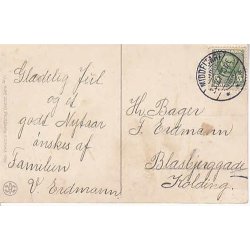 Glædelig Jul
og et
godt Nytaar
ønskes af
Familien
V. Erdmann
Hr. Bager
J. Erdmann
Blæsbjerggade
Kolding.